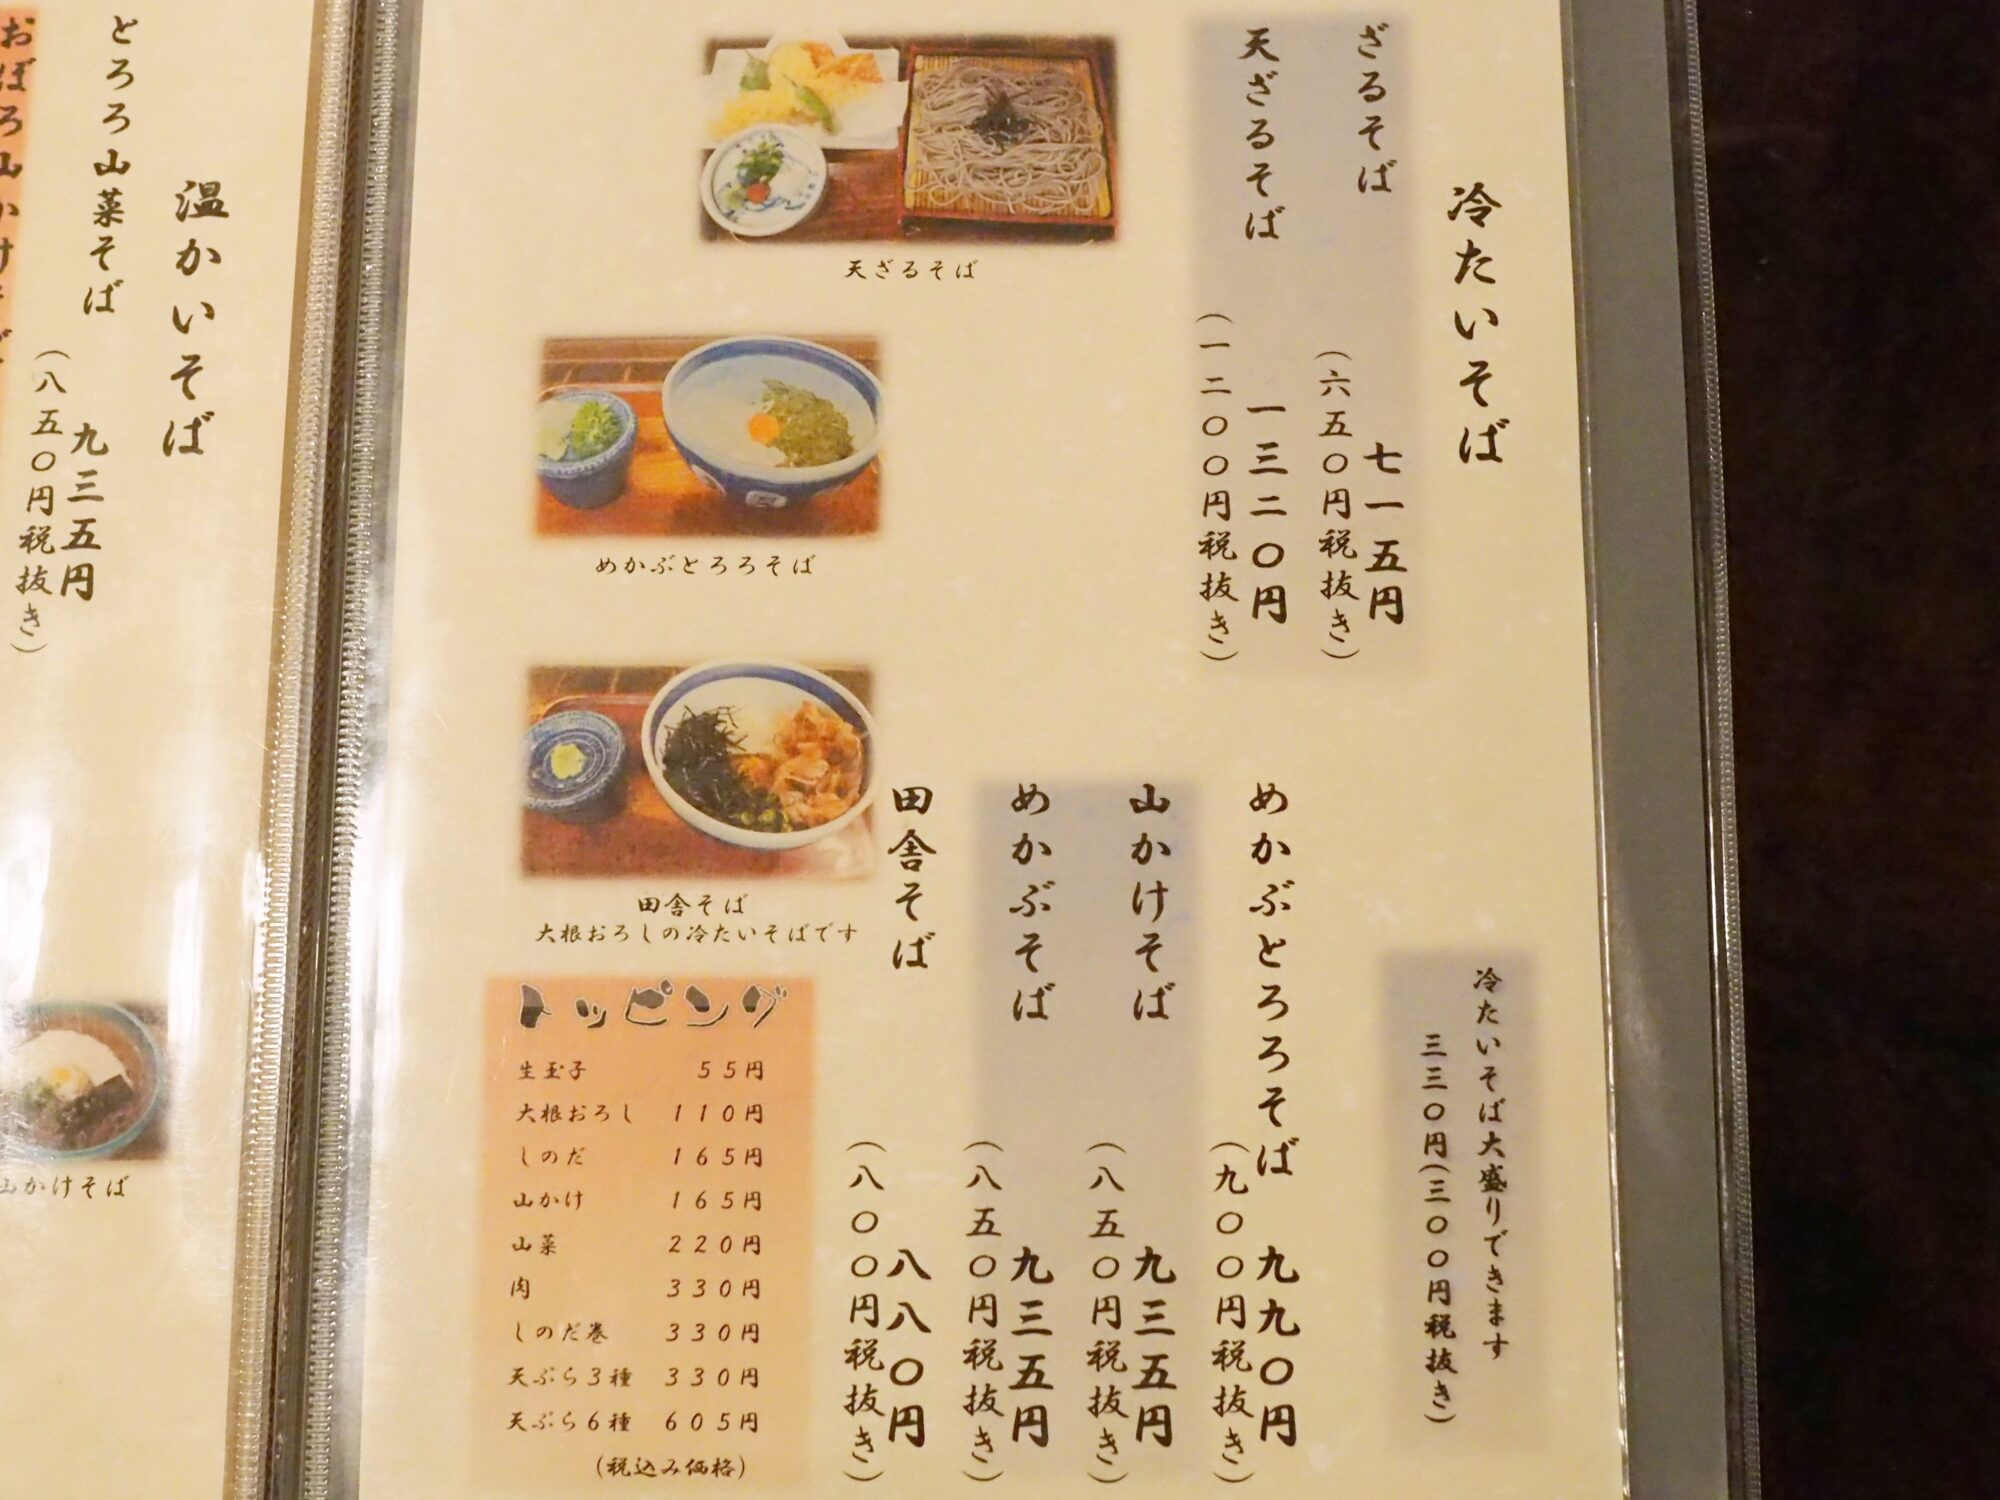 冷たいそば
ざるそば
七一五円
（六五〇円税抜き）
天ざるそば
一三二〇円
（一二〇〇円税抜き）
冷たいそば大盛りできます
三三〇円（三〇〇円税抜き）
めかぶとろろそば
九九〇円
（九〇〇円税抜き）
山かけそば
九三五円
（八五〇円税抜き）
めかぶそば
九三五円
（八五〇円税抜き）
田舎そば
八八〇円
（八〇〇円税抜き）
天ざるそば
めかぶとろろそば
田舎そば
大根おろしの冷たいそばです
トッピング
生玉子 55円
大根おろし 110円
しのだ 165円
山かけ 165円
山菜 220円
肉 330円
しのだ巻 330円
天ぷら3種 330円
天ぷら6種 605円
（税込み価格）
温かいそば
とろろ山菜そば
九三五円
（八五〇円税抜き）
おぼろ山かけ
山かけそば